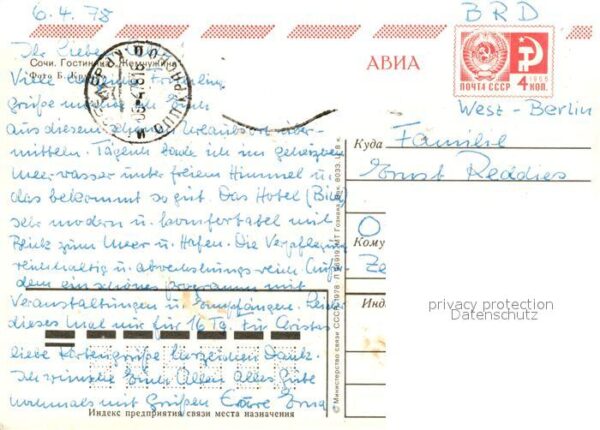 6.4.78
BRD
Ihr Lieben
Сочи. Гостиница „Жемчужина"
Фото Б.
АВИА
ПОЧТА СССР 4 КОП.
1966
West-Berlin
Viele Frühling
Grüße möchte ich Euch
aus diesem schönen Urlaubsort über-
mitteln. Täglich bade ich im geheizten
Meerwasser unter freiem Himmel u.
das bekommt so gut. Das Hotel (Bild)
sehr modern u. komfortabel mit
Blick zum Meer u. Hafen. Die Verpflegung
reichhaltig u. abwechslungsreich. Außer-
dem ein schönes Programm mit
Veranstaltungen u. Empfängen. Leider
dieses Mal nur für 16 Tg. Für
liebe Kartengrüße herzlichen Dank.
Ich wünsche Euch Allen alles Gute
nochmals mit Grüßen Eure Erna
Куда Familie
Ernst Reddies
Кому
Инд
privacy protection
Datenschutz
Индекс предприятия связи места назначения
© Министерство связи СССР. 1978